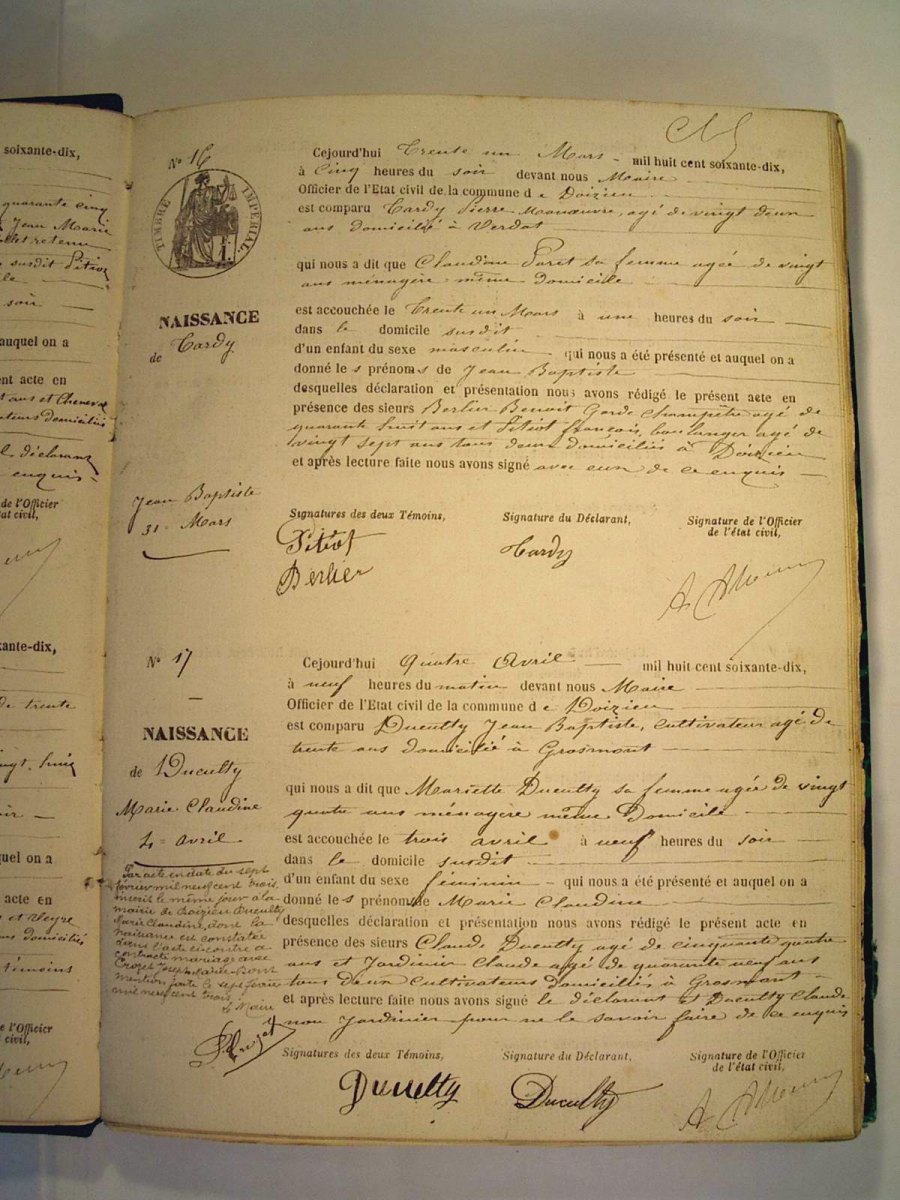 soixante-dix,
quarante cinq
Jean Marie
susdit Pitiot
soir
auquel on a
ent acte en
domiciliés
déclarant
enquis -
de l'Officier
at civil,
xante-dix,
de trente
vingt-huit
uel on a
acte en
et Veyre
domiciliés
témoins
e l'Officier
civil,
N° 16
TIMBRE IMPÉRIAL
NAISSANCE
de Tardy
Jean Baptiste
31 - Mars
Cejourd'hui Trente un Mars - mil huit cent soixante-dix,
à Cinq heures du soir devant nous Maire
Officier de l'Etat civil de la commune d e Doizieu
est comparu Tardy Pierre Manœuvre, agé de vingt deux
ans domicilié à Verdot
qui nous a dit que Claudine Paret sa femme agée de vingt
ans ménagère même domicile
est accouchée le Trente un Mars à une heures du soir
dans le domicile susdit
d'un enfant du sexe masculin qui nous a été présenté et auquel on a
donné le s prénoms de Jean Baptiste
desquelles déclaration et présentation nous avons rédigé le présent acte en
présence des sieurs Berlier Benoit Garde champêtre agé de
quarante huit ans et Pitiot françois, boulanger agé de
vingt sept ans tous deux domiciliés à Doizieu
et après lecture faite nous avons signé avec eux de ce enquis
Signatures des deux Témoins,
Signature du Déclarant,
Signature de l'Officier
de l'état civil,
Pitiot
Tardy
Berlier
N° 17
NAISSANCE
de Ducultty
Marie Claudine
4 = avril
Par acte en date du sept
février mil neuf cent trois,
inscrit le même jour a la
mairie de Doizieu Ducultty
Marie Claudine, dont la
naissance est constatée
dans l'acte ci-contre a
contracté mariage avec
Crozet Jean Marie Dont
mention faite le sept février
mil neuf cent trois,
Le Maire
Cejourd'hui Quatre Avril mil huit cent soixante-dix,
à neuf heures du matin devant nous Maire
Officier de l'Etat civil de la commune d e Doizieu
est comparu Ducultty Jean Baptiste, cultivateur agé de
trente ans domicilié à Grosmont
qui nous a dit que Mariette Ducultty sa femme agée de vingt
quatre ans ménagère même Domicile
est accouchée le trois avril à neuf heures du soir
dans le domicile susdit
d'un enfant du sexe féminin - qui nous a été présenté et auquel on a
donné le s prénoms de Marie Claudine
desquelles déclaration et présentation nous avons rédigé le présent acte en
présence des sieurs Claude Ducultty agé de cinquante quatre
ans et Jardinier Claude agé de quarante neuf ans
tous deux Cultivateurs Domiciliés à Grosmont
et après lecture faite nous avons signé le déclarant et Ducultty Claude
non Jardinier pour ne le savoir faire de ce enquis
Signatures des deux Témoins,
Signature du Déclarant,
Signature de l'Officier
de l'état civil,
Ducultty
Ducultty